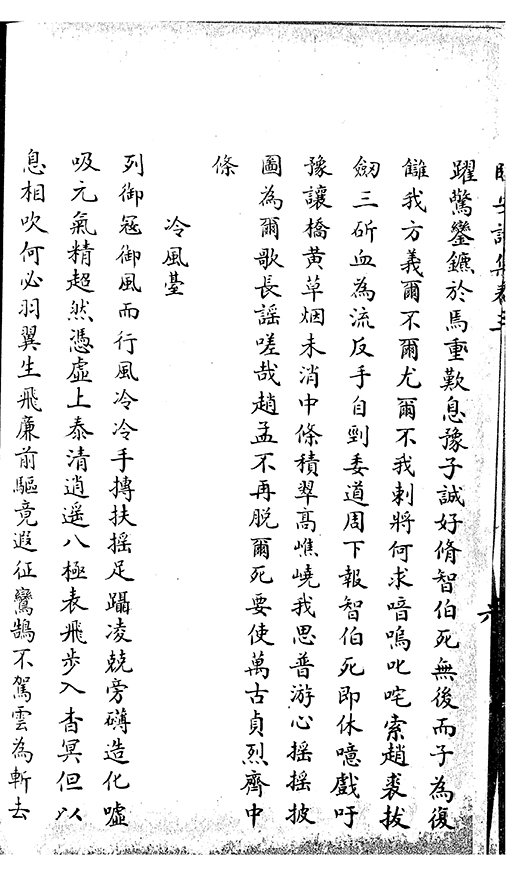 躍驚鑾鑣於馬重歎息豫子誠好脩智伯死無後而子為復
讎我方義爾不爾尤爾不我剌將何求喑嗚叱咤索趙裘拔
劒三斫血為流反手自剄委道周下報智伯死即休噫戲吁
豫讓橋黃草烟未消中條積翠髙嶕嶢我思普游心搖搖披
圖為爾歌長謡嗟哉趙孟不再脱爾死要使萬古貞烈齊中
條
冷風臺
列御冦御風而行風冷冷手摶扶摇足躡凌兢旁礴造化嘘
吸元氣精超然憑虛上泰清逍遥八極表飛步入杳冥但以
息相吹何必羽翼生飛廉前驅竟遐征鸞鵠不駕雲為斬去